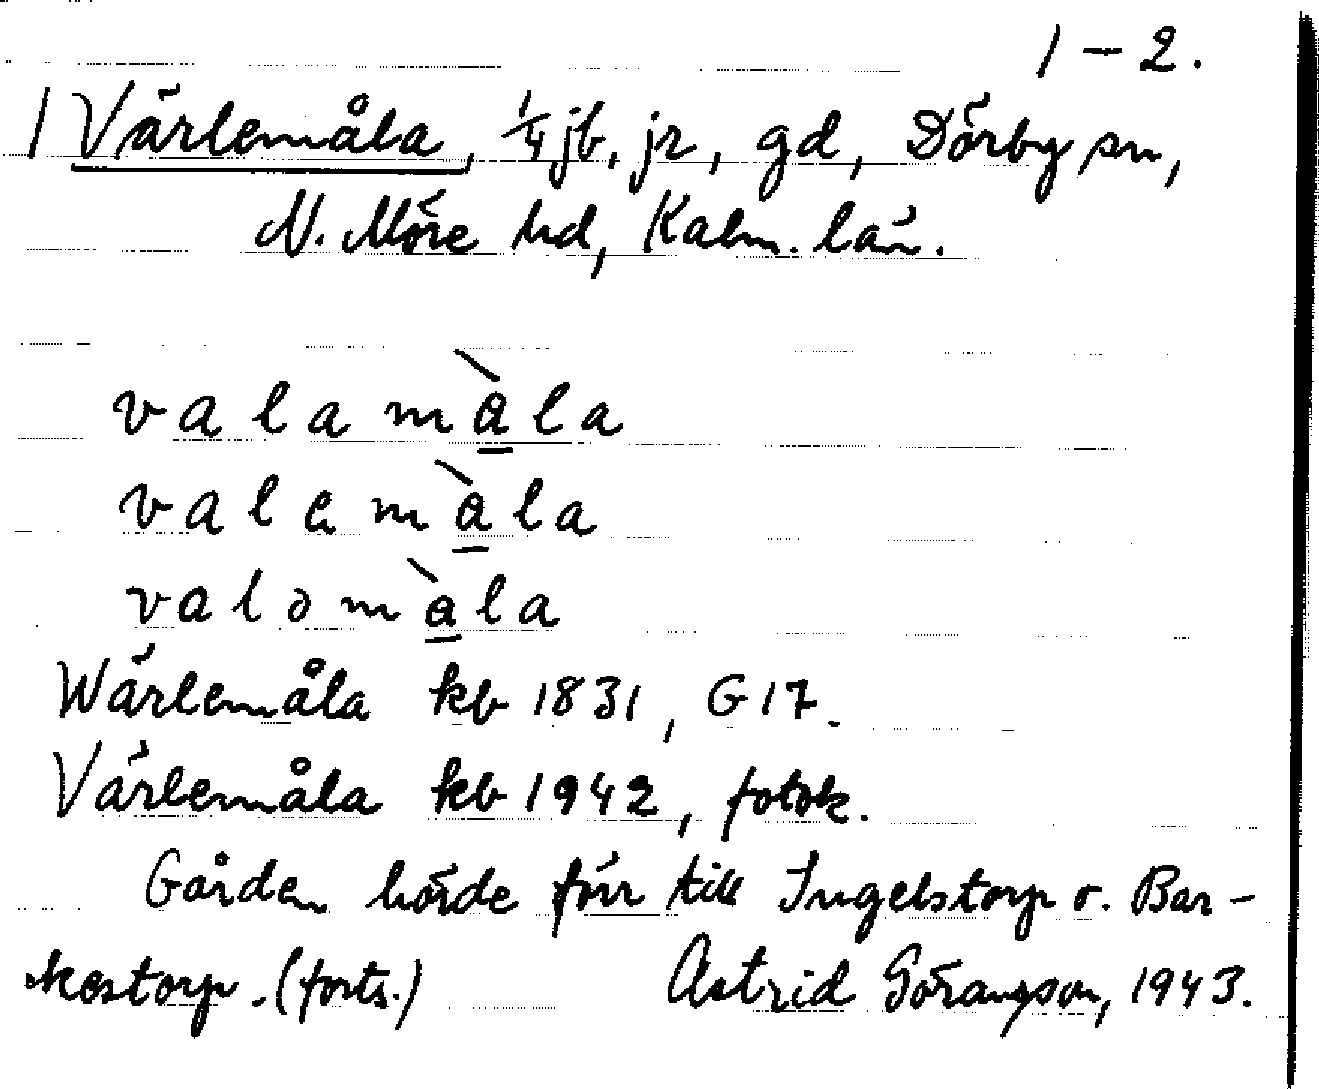 1-2.
1 Värlemåla, 1/4 jb, jr, gd, Dörby sn,
N. Möre hd, Kalm. län.
v a l a m à̠ l a
v a l e m à̠ l a
v a l o m à̠ l a
Wärlemåla kb 1831, G17.
Värlemåla kb 1942, fotok.
Gården hörde förr till Ingelstorp o. Bar-
kestorp. (forts.) Astrid Göransson, 1943.